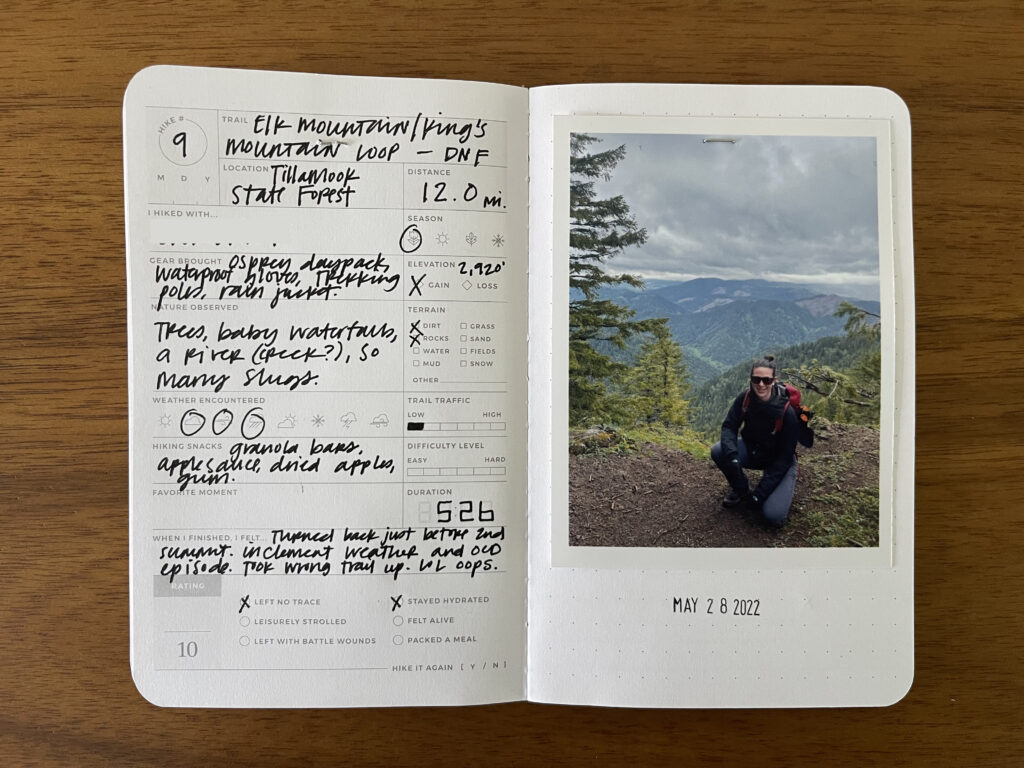 HIKE #
9
M D Y
TRAIL Elk Mountain/King's
Mountain Loop - DNF
LOCATION Tillamook
State Forest
DISTANCE
12.0 mi.
I HIKED WITH...
SEASON
GEAR BROUGHT Osprey daypack,
waterproof gloves, trekking
poles, rain jacket.
ELEVATION 2,920'
X GAIN LOSS
NATURE OBSERVED
Trees, baby waterfalls,
a river (creek?), so
many slugs.
TERRAIN
X DIRT GRASS
X ROCKS SAND
WATER FIELDS
MUD SNOW
OTHER
WEATHER ENCOUNTERED
TRAIL TRAFFIC
LOW HIGH
HIKING SNACKS granola bars,
applesauce, dried apples,
gum.
DIFFICULTY LEVEL
EASY HARD
FAVORITE MOMENT
DURATION
5:26
WHEN I FINISHED, I FELT... Turned back just before 2nd
summit. Inclement weather and OCD
episode. Took wrong trail up. LOL oops.
RATING
10
X LEFT NO TRACE
LEISURELY STROLLED
LEFT WITH BATTLE WOUNDS
X STAYED HYDRATED
FELT ALIVE
PACKED A MEAL
HIKE IT AGAIN [ Y / N ]
MAY 28 2022